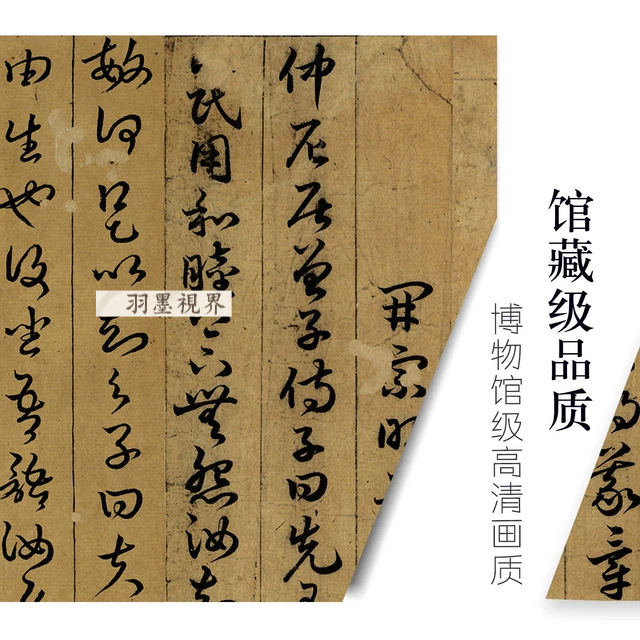 開宗明
仲尼居曾子侍子曰先王
民用和睦上下無怨汝知
敏何足以知之子曰夫
由生也復坐吾語汝
羽墨視界
馆藏级品质
博物馆级高清画质
義章